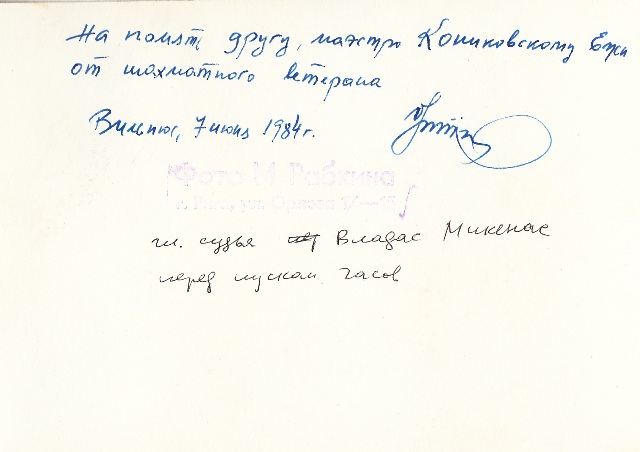 На память другу, маэстро Кониковскому Ежи
от шахматного ветерана
Вильнюс, 7 июня 1984 г.
Фото М Рабкина
г. Рига, ул.
гл. судья Владас Микенас
перед пуском часов